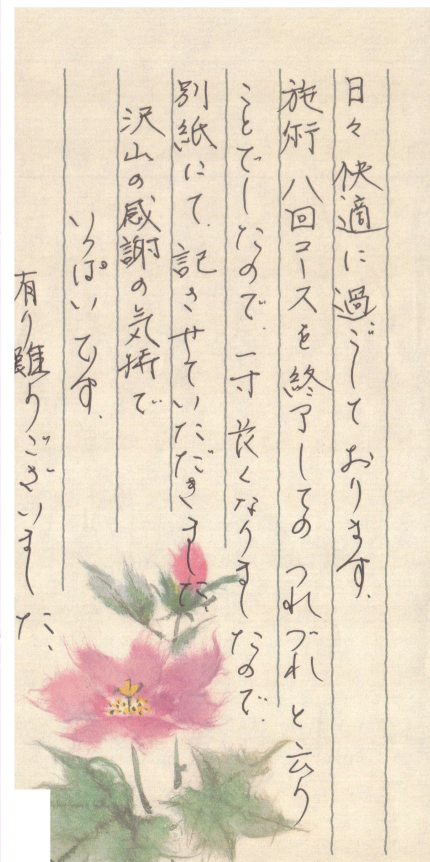 日々快適に過ごしております。
施術八回コースを終了してのつれづれと云う
ことでしたので、一寸長くなりましたので、
別紙にて、記させていただきました。
沢山の感謝の気持で
いっぱいです。
有り難うございました。